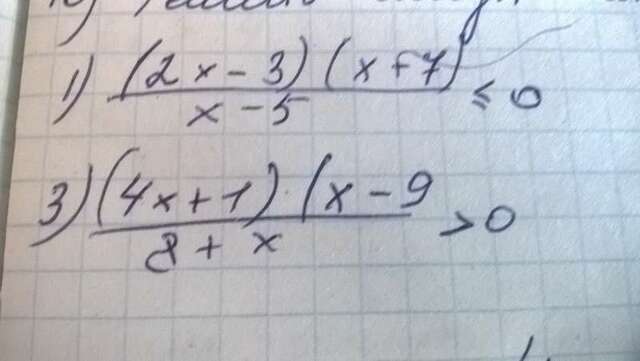 1) (2x-3)(x+7) / x-5 ≤ 0
3) (4x+1)·(x-9 / 8+x > 0